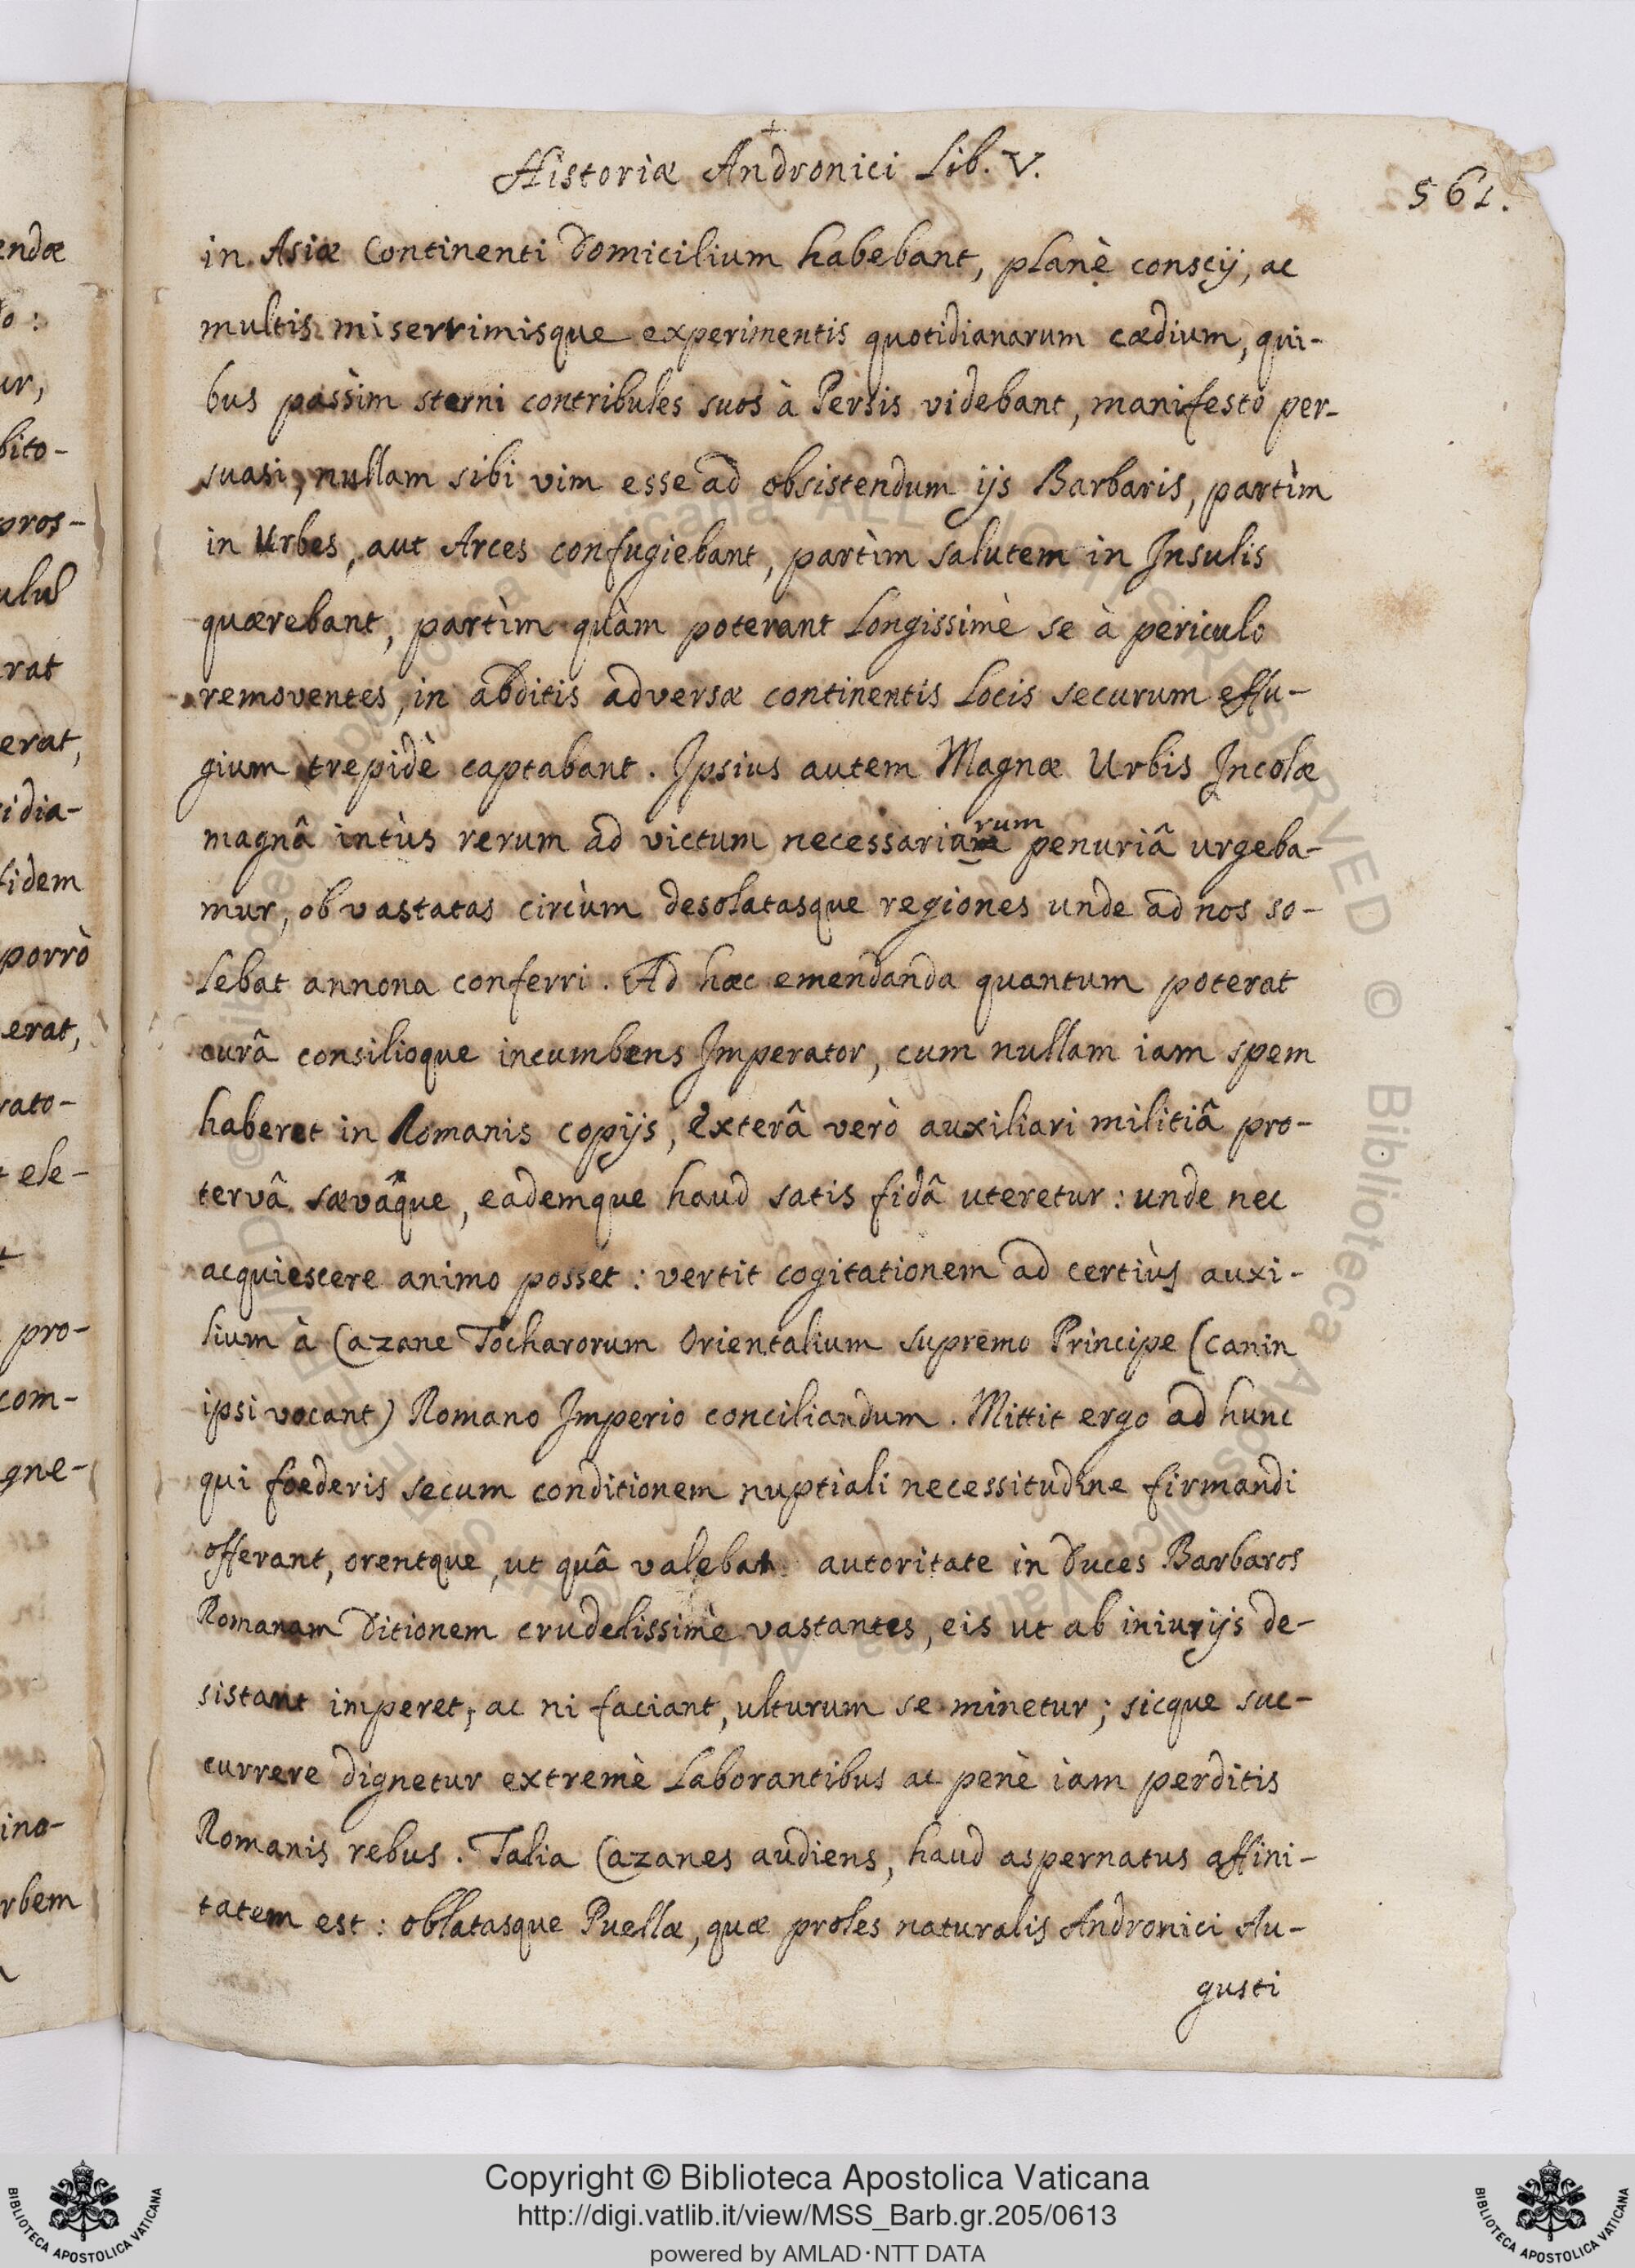 Historiæ Andronici Lib. V.
561.
in Asiæ Continenti Domicilium habebant, planè conscij, ac
multis miserrimisque experimentis quotidianarum cædium, qui-
bus passìm sterni contribules suos à Persis videbant, manifestò per-
suasi, nullam sibi vim esse ad obsistendum ijs Barbaris, partìm
in Urbes, aut Arces confugiebant, partìm salutem in Insulis
quærebant, partìm quàm poterant Longissimè se à periculo
removentes, in abditis adversæ continentis Locis securum effu-
gium trepidè captabant. Ipsius autem Magnæ Urbis Incolæ
magnâ intùs rerum ad victum necessariarum penuriâ urgeba-
mur, ob vastatas circùm desolatasque regiones unde ad nos so-
lebat annona conferri. Ad hæc emendanda quantum poterat
curâ consilioque incumbens Imperator, cum nullam iam spem
haberet in Romanis copijs, exterâ verò auxiliari militiâ pro-
tervâ sævâque, eademque haud satis fidâ uteretur: unde nec
acquiescere animo posset: vertit cogitationem ad certiùs auxi-
lium à Cazane Tocharorum Orientalium supremo Principe (canin
ipsi vocant) Romano Imperio conciliandum. Mittit ergo ad hunc
qui foederis secum conditionem nuptiali necessitudine firmandi
offerant, orentque, ut quâ valebat autoritate in Duces Barbaros
Romanam Ditionem crudelissimè vastantes, eis ut ab iniurijs de-
sistant imperet, ac ni faciant, ulturum se minetur; sicque suc-
currere dignetur extremè Laborantibus ac penè iam perditis
Romanis rebus. Talia Cazanes audiens, haud aspernatus affini-
tatem est: oblatasque Puellæ, quæ proles naturalis Andronici Au-
gusti
endæ
o:
ur,
bito-
pros-
rat
erat,
idia-
fidem
porrò
erat,
rato-
ele-
pro-
com-
gne-
ino-
rbem
Copyright © Biblioteca Apostolica Vaticana
http://digi.vatlib.it/view/MSS_Barb.gr.205/0613
powered by AMLAD·NTT DATA
BIBLIOTECA APOSTOLICA VATICANA
BIBLIOTECA APOSTOLICA VATICANA